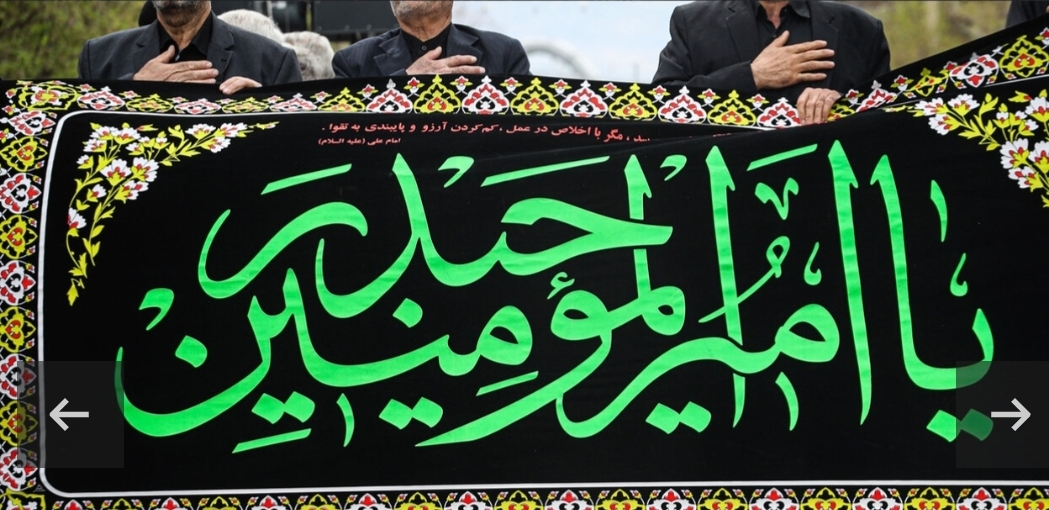 مگر با اخلاص در عمل ، کم کردن آرزو و پایبندی به تقوا .
امام علی (علیه السلام)
یا امیرالمؤمنین حیدر